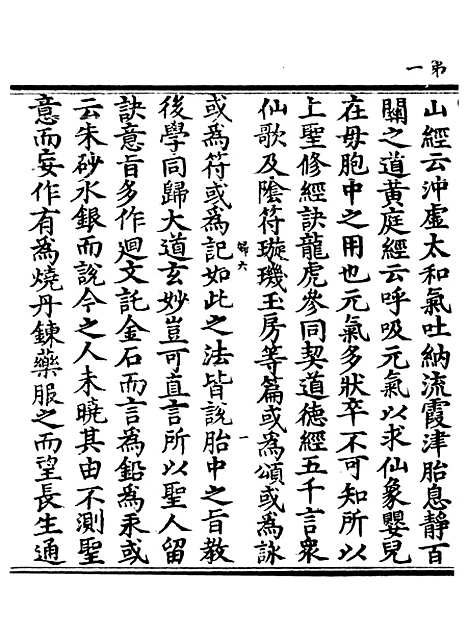 弟一
山經云沖虛太和氣吐納流霞津胎息靜百
關之道黃庭經云呼吸元氣以求仙象嬰兒
在母胞中之用也元氣多狀卒不可知所以
上聖修經訣龍虎參同契道德經五千言衆
仙歌及陰符璇璣玉房等篇或為頌或為詠
歸六 一
或為符或為記如此之法皆說胎中之旨教
後學同歸大道玄妙豈可直言所以聖人留
訣意旨多作迴文託金石而言為鉛為汞或
云朱砂水銀而說今之人未曉其由不測聖
意而妄作有為燒丹鍊藥服之而望長生通